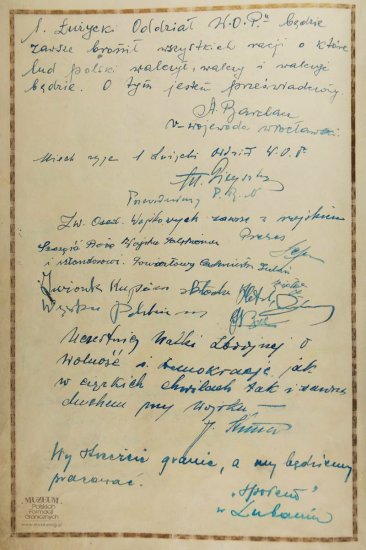 1. Łużycki Oddział W.O.P." będzie
zawsze bronił wszystkich racji o które
lud polski walczył, walczy i walczyć
będzie. O tym jestem przeświadczony
A. Barchacz
v-wojewoda wrocławski.
Niech żyje 1 Łużycki Oddział W.O.P.
Przewodniczący P.R.N
Zw. Osad. Wojskowych zawsze z wojskiem
Prezes
Szczęść Boże Wojsku Polskiemu
i sztandarowi. Powiatowy
Związek Kupców składa
Wojsku Polskiemu
Uczestnicy Walki Zbrojnej o
Wolność i Demokrację jak
w ciężkich chwilach tak i zawsze
duchem przy wojsku
Wy strzeżcie granic, a my będziemy
pracować.
"Społem"
w Lubaniu
MUZEUM
Polskich
Formacji
Granicznych